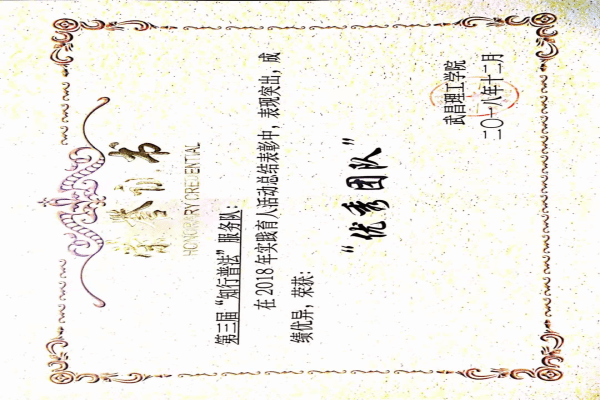 荣誉证书
HONORARY CREDENTIAL
第三届“知行普法”服务队:
在2018年实践育人活动总结表彰中，表现突出，成
绩优异，荣获:
“优秀团队”
武昌理工学院
二〇一八年十二月